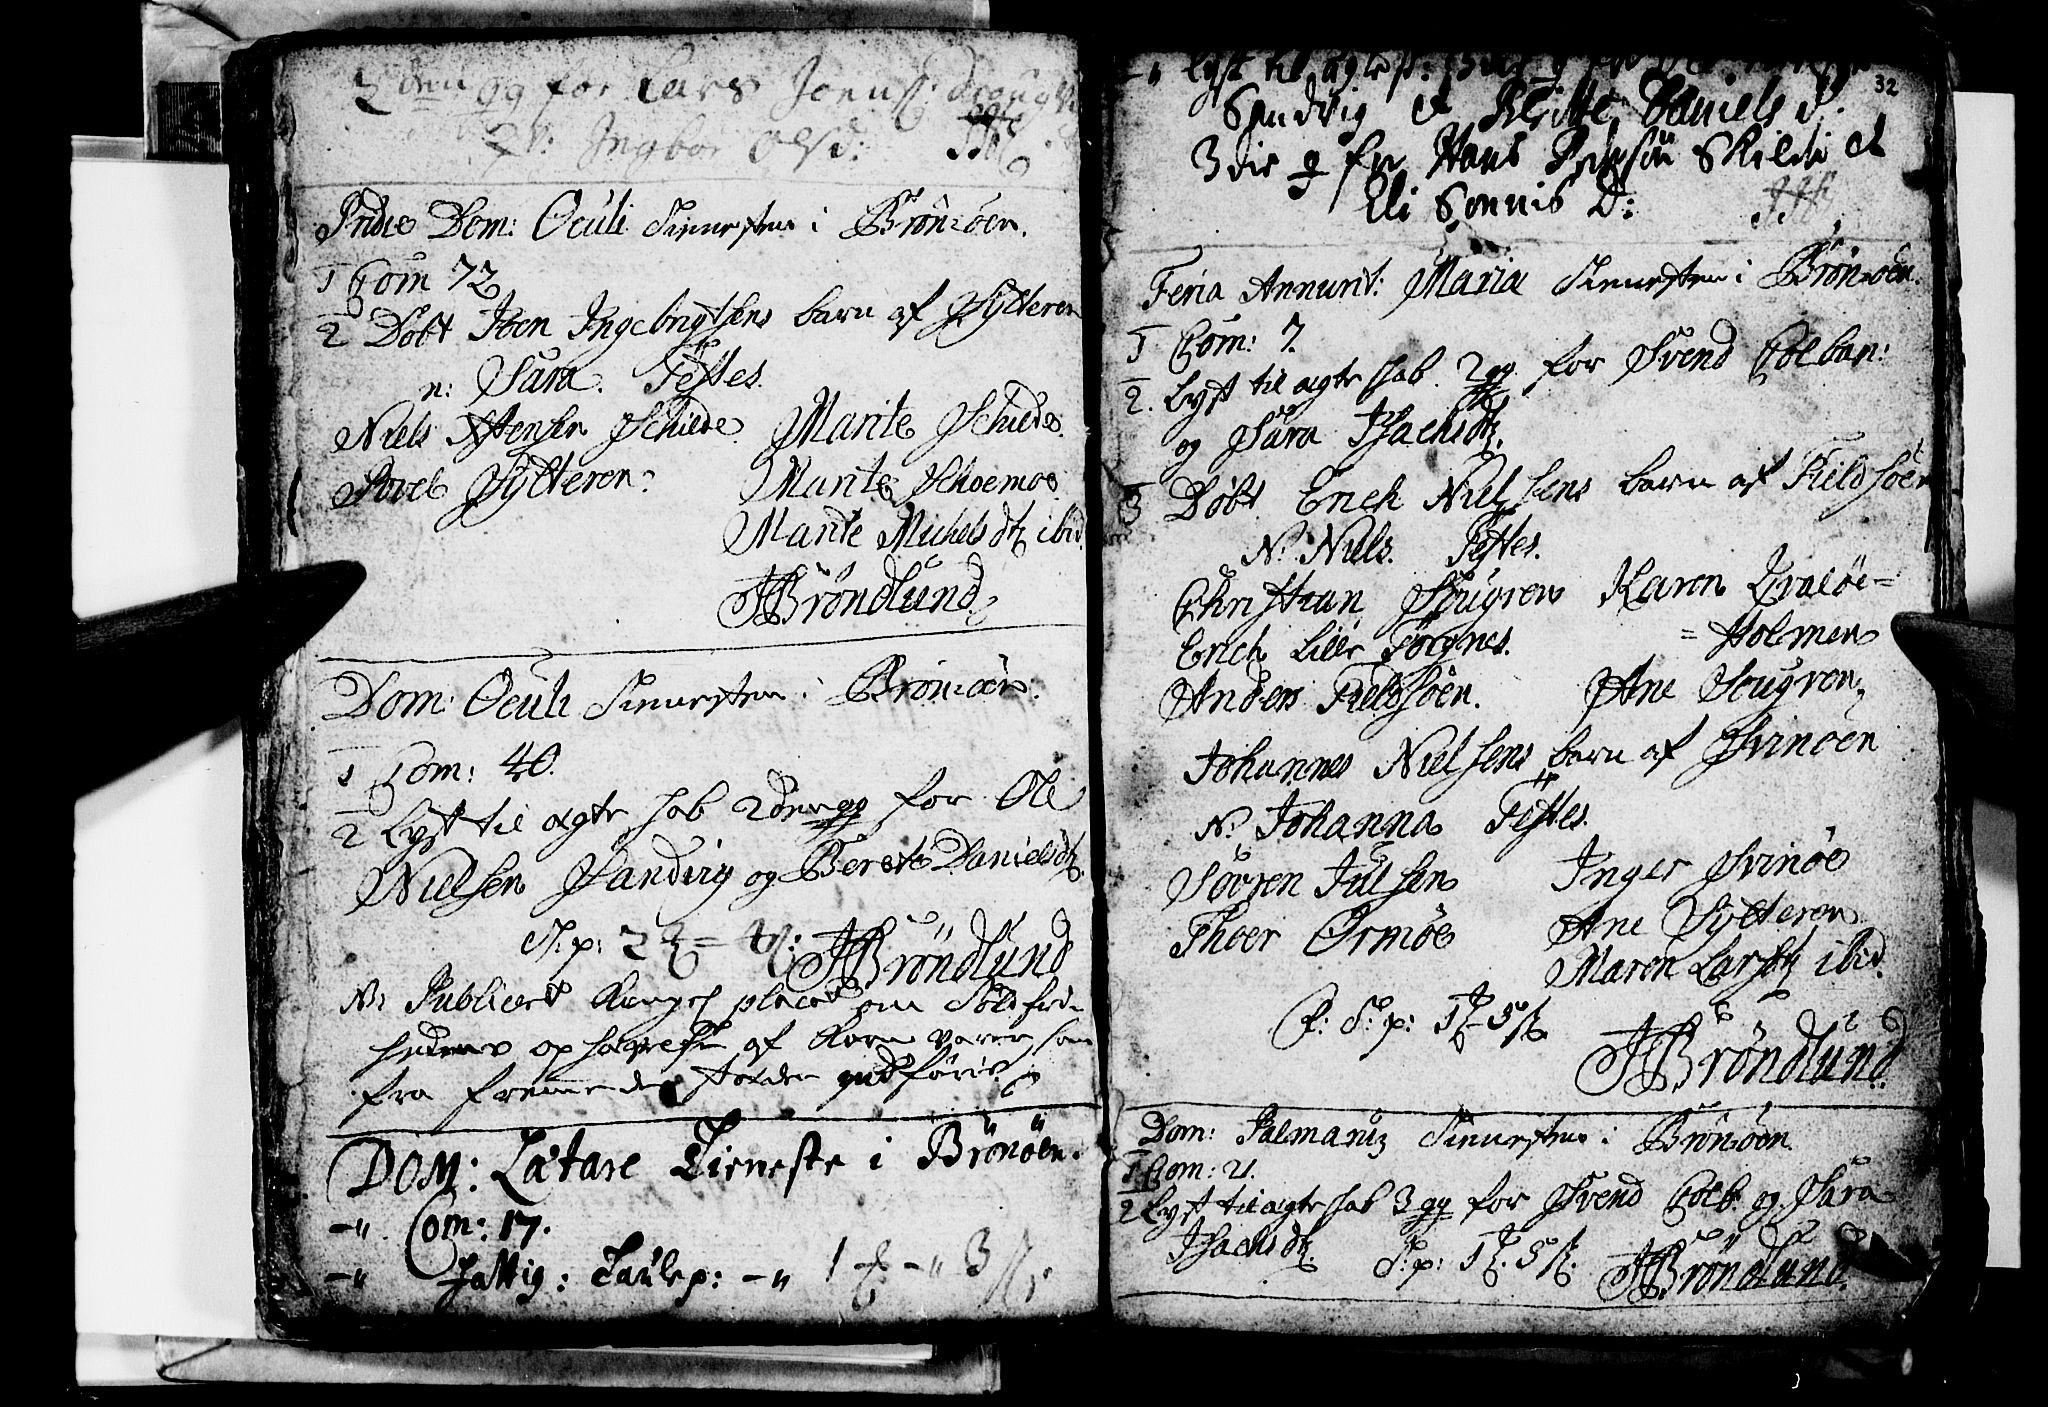 2den gg for Lars Joens: Sougr
qv: Ingbor Olsd:
Pridie Dom: Oculi Tienesten i Brönöen.
1 Com 72
2 Döbt Joen Ingebrigtsens barn af Sylteren
n: Sara. Testes.
Niels Stensen Schiede. Marite Schiede.
Povel Sylteren. Marite Schoemoe
Marite Michelsdtz ibid.
JBröndlund
Dom: Oculi Tienesten i Brönöen.
1 Com: 40.
2 Lyst til ægteskab 2den gg for Ole
Nielsen Sandvig og Berete Danielsdtz
T: p: 2
JBröndlund
N: Publicert placat om Told fri-
heden af Korn varer, som
fra fremmede stæder indföris.
DOM: Lætare Tieneste i Brönöen.
-" Com: 17.
-" fattig: Taulep: -" 1 -" 3
32
-" Lyst til ægtesk:
Sandvig et Britte Daniels d.
3die g for Hans Skilde et
Eli Sonnis D:
Feria Annunt: Mariæ Tienesten i Brönöen.
1 Com: 7.
2. Lyst til ægteskab 2 gg for Svend Colban:
og Sara Isachsdtz.
3 Döbt Erich Nielsens barn af Fieldsöen
N: Niels. Testes.
Christian Sougren Karen Qvalöe=
Erich Lille Torgnes. =Holmen
Anders Fieldsöen. Ane Sougren
Johannes Nielsens barn af Svinöen
N: Johanna Testes.
Sören Julsen Inger Svinöe
Thoer Ormöe Ane Sylteren
Maren Larsdtz ibid.
C: T: p: 1 - 5
JBröndlund
Dom: Palmarum Tienesten i Brönöen.
1 Com: 21.
2 Lyst til ægteskab 3 gg for Svend Colb: og Sara
Isachsdtz. T: p: 1. 5.
JBröndlund.